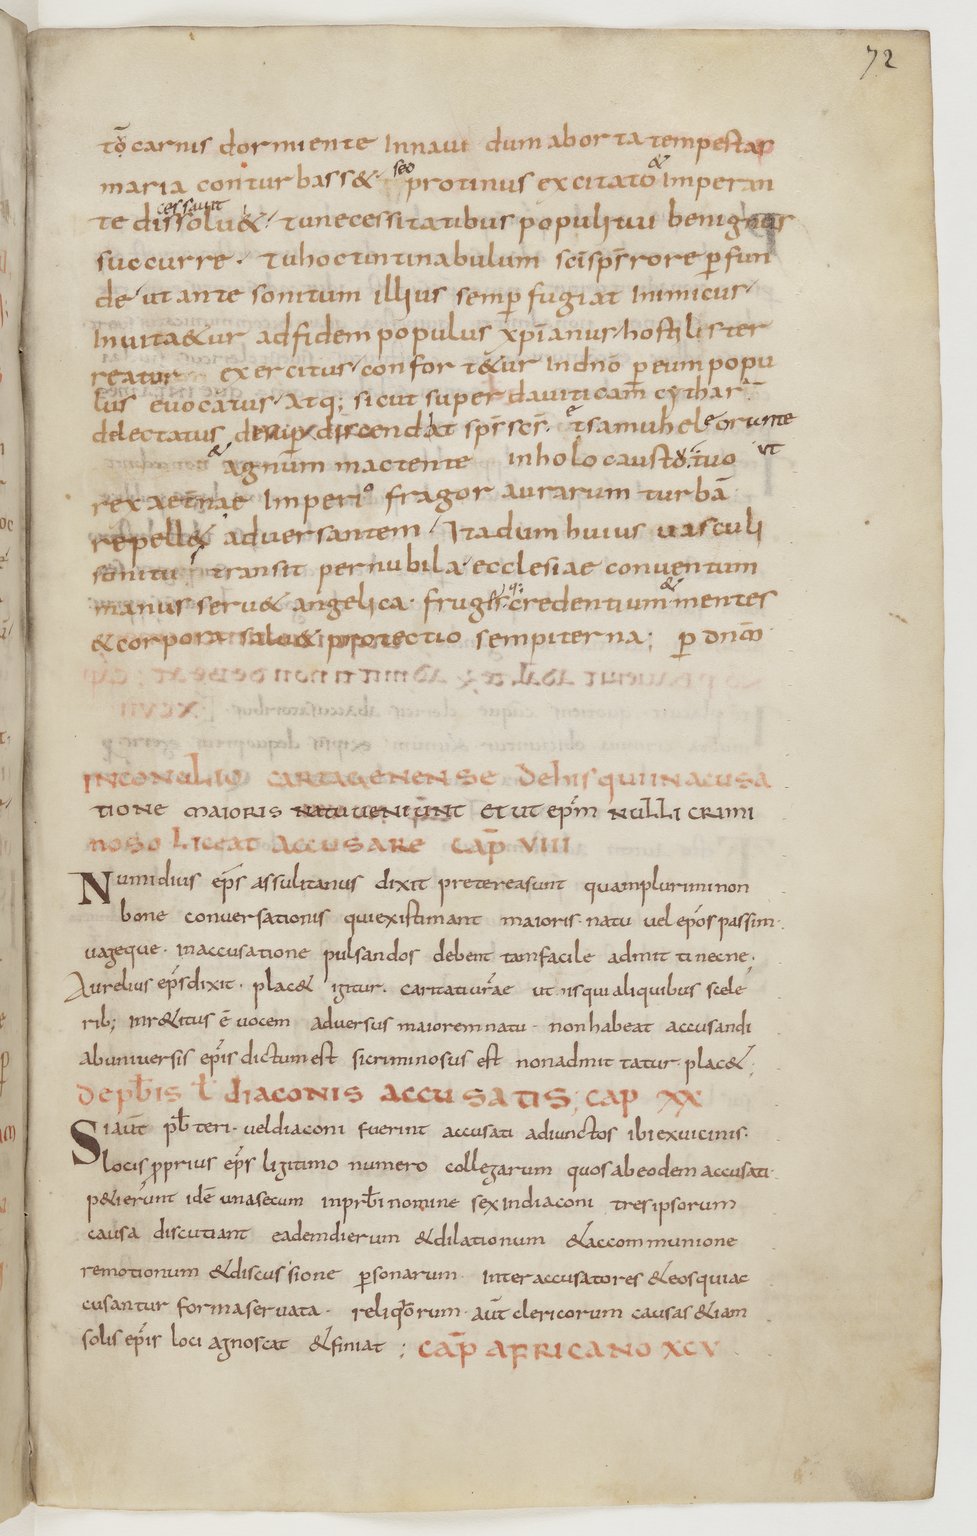 72
tō carnis dormiente Innaui dum aborta tempestas
maria conturbass& seo protinus excitato & Imperan
te dissolu& cessauit tu necessitatibus populi tui benignus
succurre. tu hoc tintinabulum sci sps rore p fun
de ut ante sonitum illius semp fugiat Inimicus
Inuita&ur ad fidem populus xpianus hostilis ter
reatur exercitus confort&ur In dno p eum popu
lus euocatus Atq; sicut super dauiticam cythar
delectatus desup discendat sps scs. Et samuhele orante
& agnum mactente in holocausto tuo ut
rex aetnae Imperio fragor aurarum turba
repell& aduersantem Ita dum huius uasculi
sonitus transit per nubila ecclesiae conuentum
manus seru& angelica. fruges q: credentium & mentes
& corpora salu& protectio sempiterna; p dnm
IN CONCILIO CARTAGENENSE De his qui in acusa
TIONE MAIORIS natu ueniunt et ut epm nulli crimi
noso liceat accusare cap VIII
Numidius eps assulitanus dixit pretereasunt quamplurimi non
bone conuersationis qui existimant maioris natu uel epos passim
uageque. in accusatione pulsandos debent tam facile admitti necne.
Aurelius eps dixit. plac& igitur. caritati urae ut is qui aliquibus scele
rib; inr&itus e uocem aduersus maiorem natu non habeat accusandi
ab uniuersis epis dictum est si criminosus est non admittatur. plac&;
De pbis ł diaconis accusatis; cap XX
Si aut pbteri. uel diaconi fuerint accusati adiunctos ibi ex uicinis.
locis pprius eps ligitimo numero collegarum quos ab eodem accusati
p&ierunt ide una secum in prbi nomine sex in diaconi tres ipsorum
causa discutiant eadem dierum & dilationum & a communione
remotionum & discussione psonarum. inter accusatores & eos qui ac
cusantur forma seruata. reliquorum. aut clericorum causas &iam
solis epis loci agnoscat & finiat; cap AFRICANO XCV